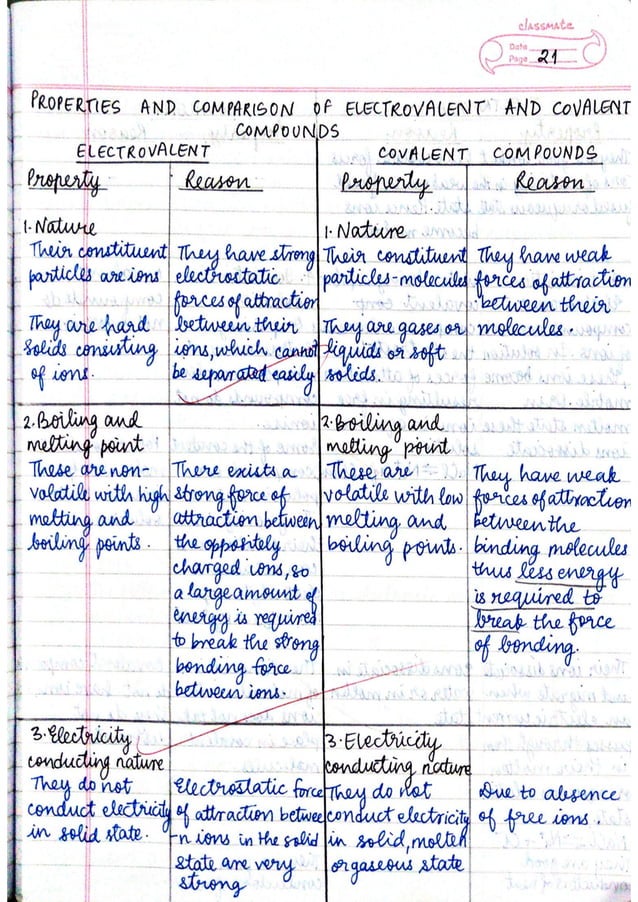 classmate
Date
Page 21
PROPERTIES AND COMPARISON OF ELECTROVALENT AND COVALENT
COMPOUNDS
ELECTROVALENT
Property
Reason
1. Nature
Their constituent
particles are ions
They are hard
solids consisting
of ions.
They have strong
electrostatic
forces of attraction
between their
ions, which cannot
be separated easily
COVALENT COMPOUNDS
Property
Reason
1. Nature
Their constituent
particles-molecules
They are gases or
liquids or soft
solids.
They have weak
forces of attraction
between their
molecules.
2. Boiling and
melting point
These are non-
volatile with high
melting and
boiling points.
There exists a
strong force of
attraction between
the oppositely
charged ions, so
a large amount of
energy is required
to break the strong
bonding force
between ions.
2. Boiling and
melting point
These are
volatile with low
melting and
boiling points.
They have weak
forces of attraction
between the
binding molecules
thus less energy
is required to
break the force
of bonding.
3. Electricity
conducting nature
They do not
conduct electricity
in solid state.
Electrostatic force
of attraction betwee
-n ions in the solid
state are very
strong
3. Electricity
conducting nature
They do not
conduct electricity
in solid, molten
or gaseous state
Due to absence
of free ions.